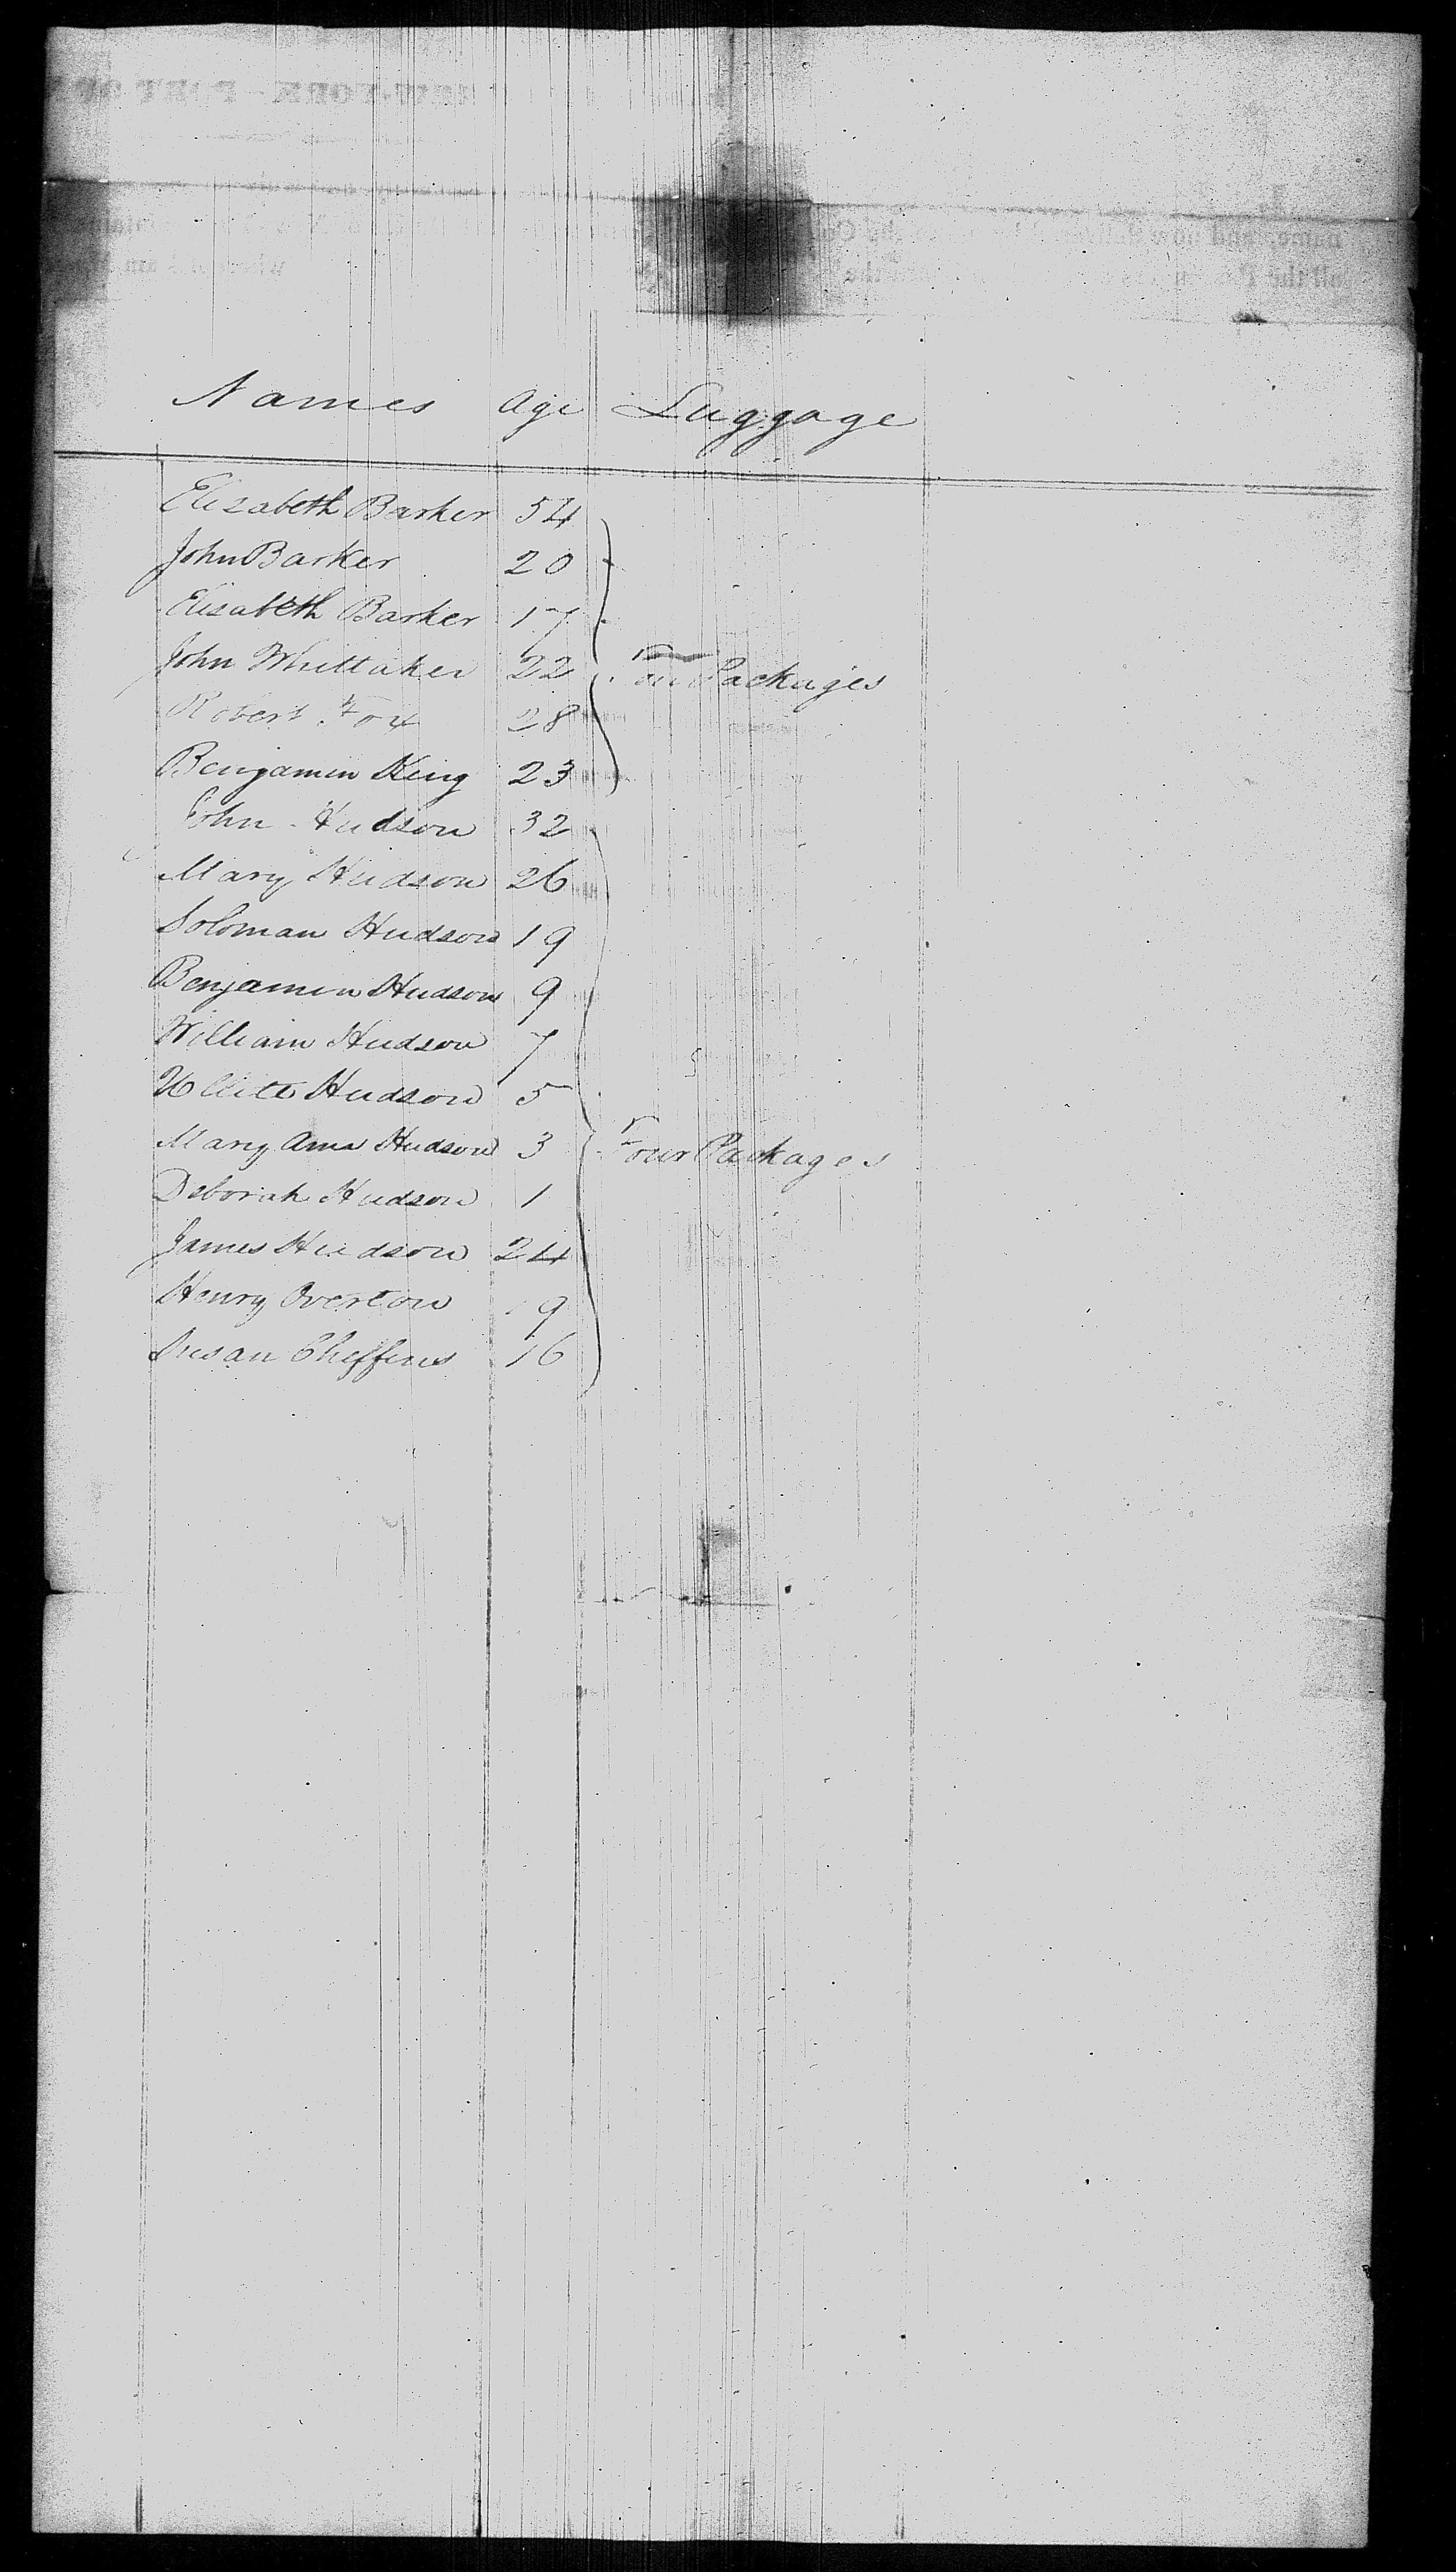 Names Age Luggage
Elizabeth Barker 54
John Barker 20
Elisabeth Barker 17
John Whittaker 22 Packages
Robert Fox 28
Benjamin King 23
John Hudson 32
Mary Hudson 26
Soloman Hudson 19
Benjamin Hudson 9
William Hudson 7
Hudson 5
Mary Ann Hudson 3 Four Packages
Deborah Hudson 1
James Hudson 24
Henry Overton 19
Susan Cheffins 16